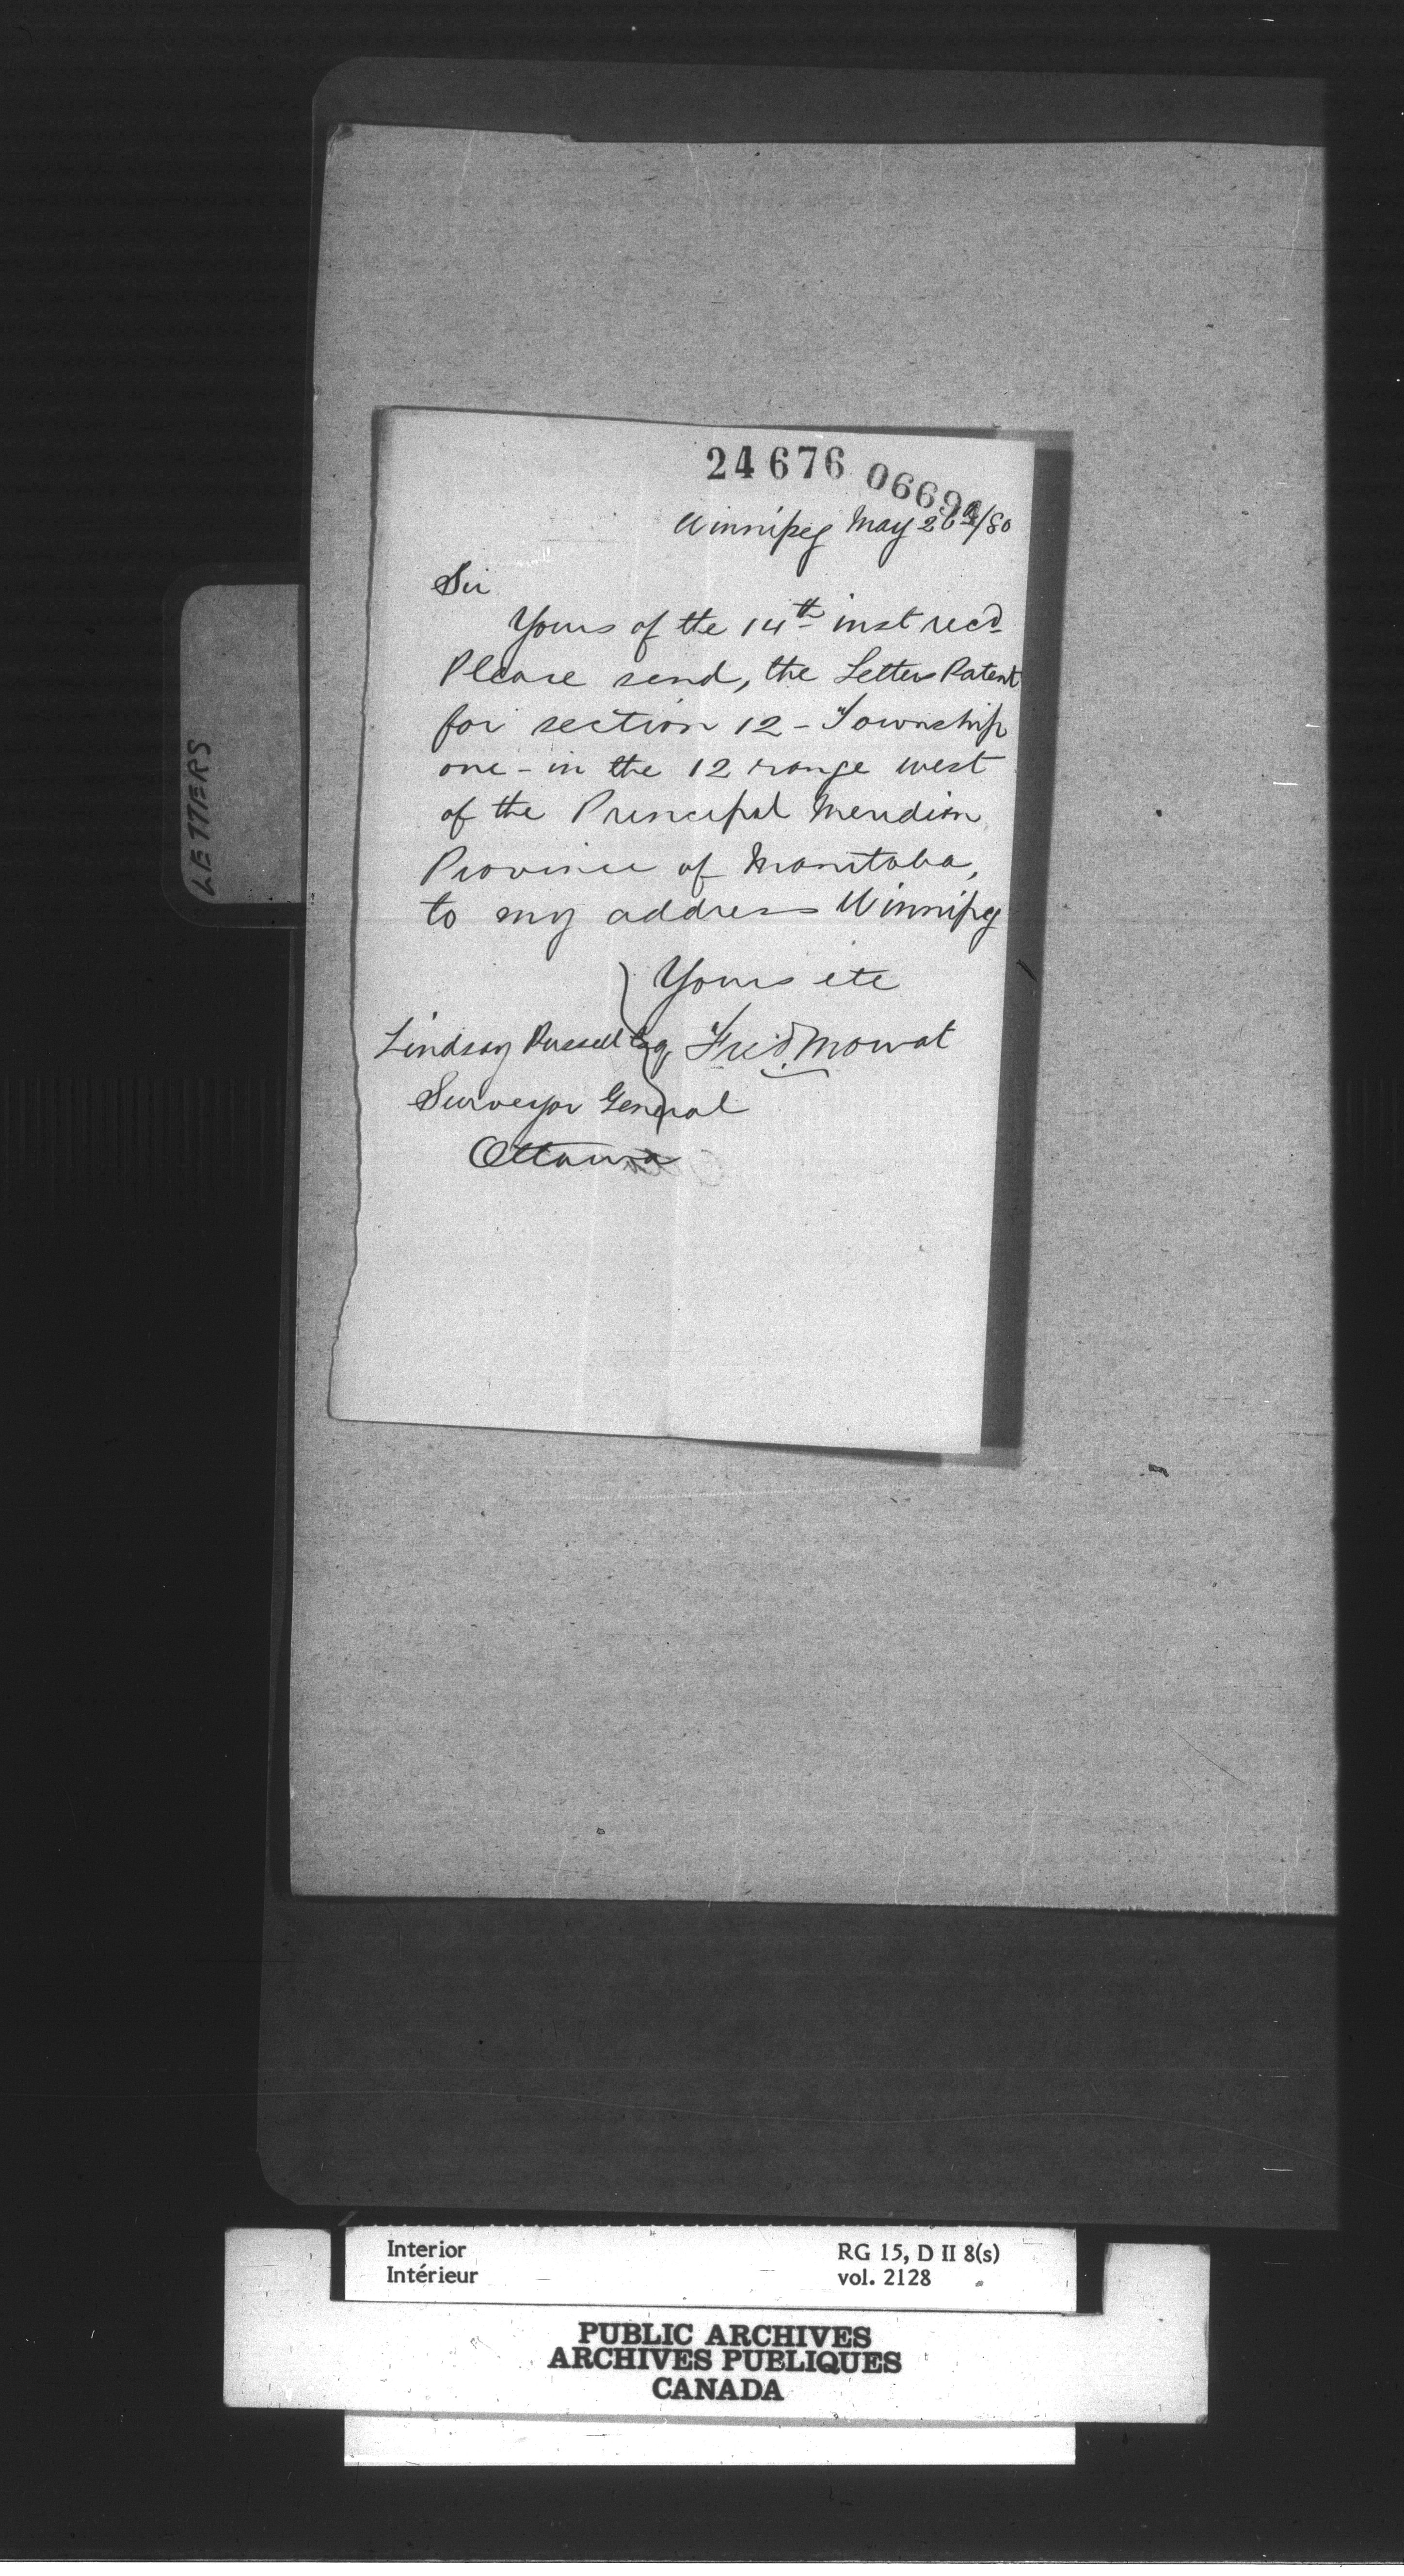 LETTERS
24676
Winnipeg May 26th/80
Sir
Yours of the 14th inst recd
Please send, the Letters Patent
for section 12 - Township
one - in the 12 range west
of the Principal Meridian
Province of Manitoba,
to my address Winnipeg
Yours etc
Lindsay Russell Esq Fred. Mowat
Surveyor General
Ottawa
Interior RG 15, D II 8(s)
Intérieur vol. 2128
PUBLIC ARCHIVES
ARCHIVES PUBLIQUES
CANADA